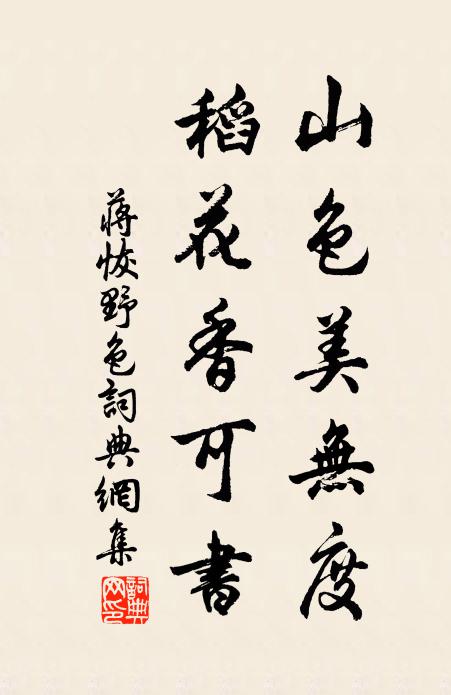 山色美無度
稻花香可書
蔣恢野色詞典網集
詞典網印